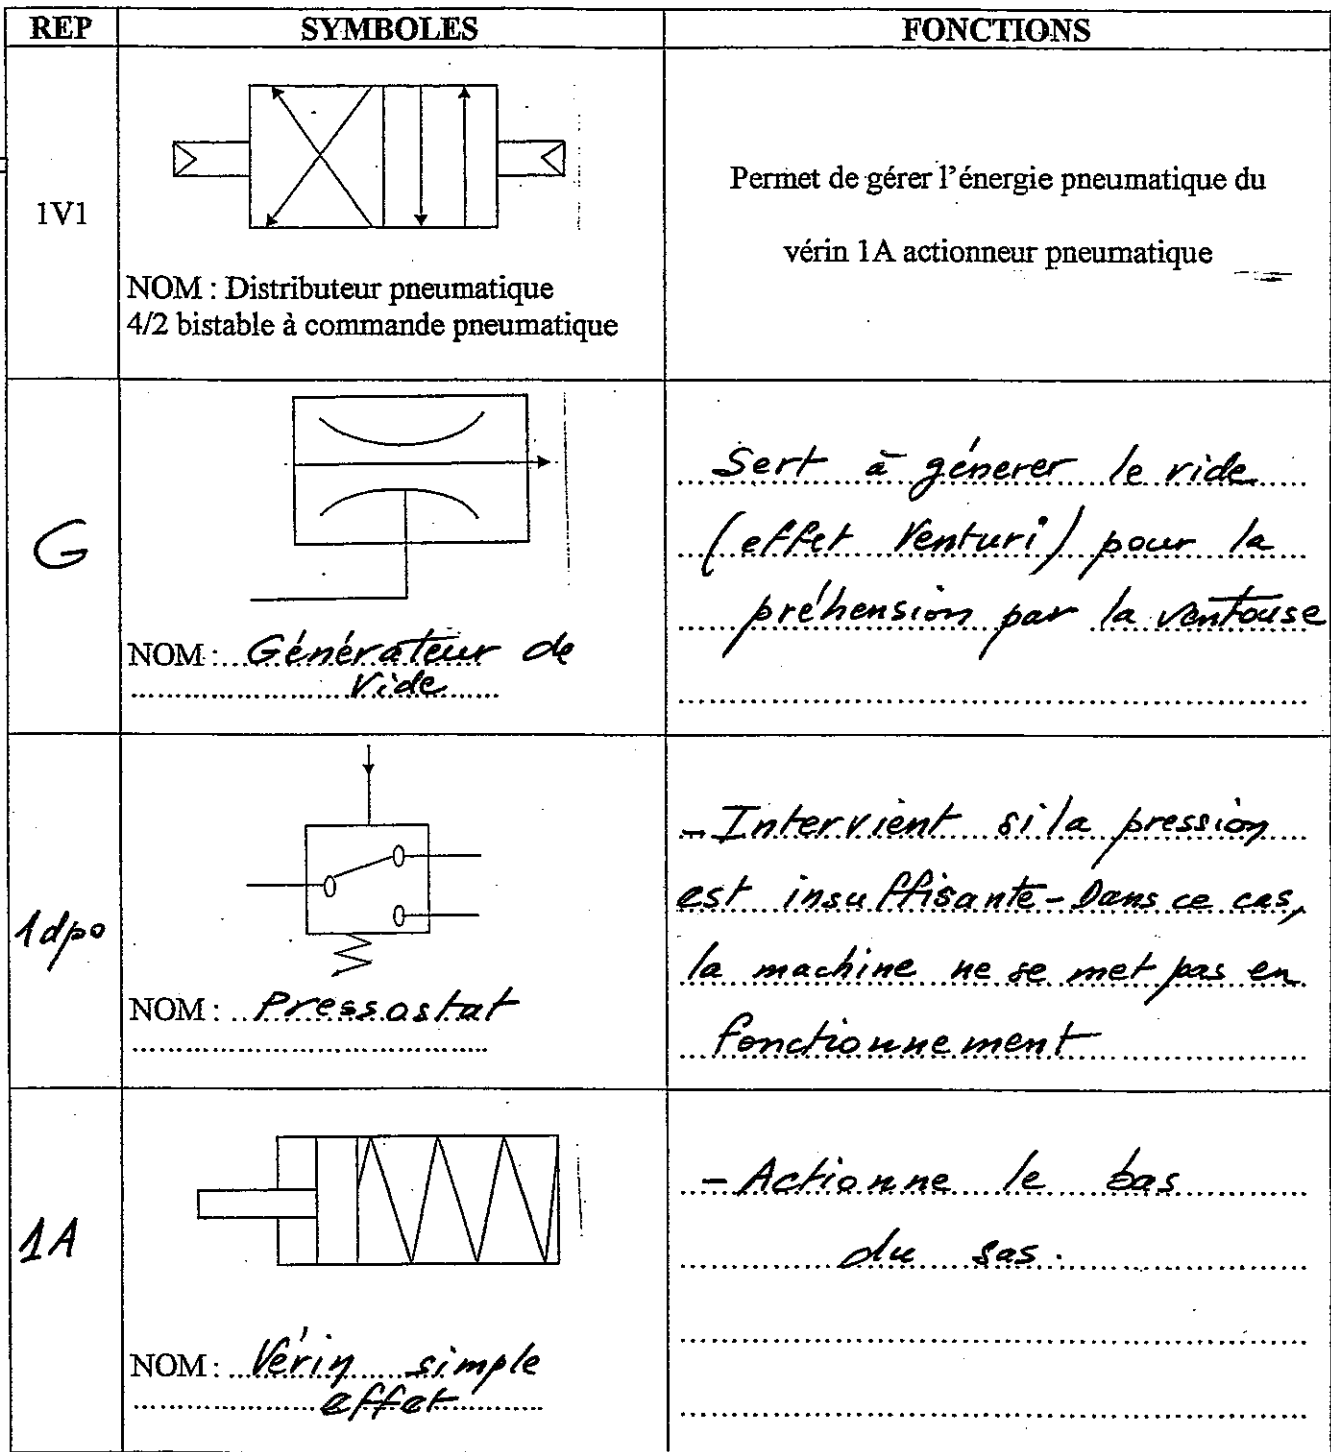 REP SYMBOLES FONCTIONS
1V1
NOM : Distributeur pneumatique
4/2 bistable à commande pneumatique
Permet de gérer l'énergie pneumatique du
vérin 1A actionneur pneumatique
G
NOM : Générateur de
Vide
Sert à génerer le vide
(effet Venturi) pour la
préhension par la ventouse
1dpo
NOM : Pressostat
- Intervient si la pression
est insuffisante - Dans ce cas,
la machine ne se met pas en
fonctionnement
1A
NOM : Vérin simple
effet
- Actionne le bas
du sas.